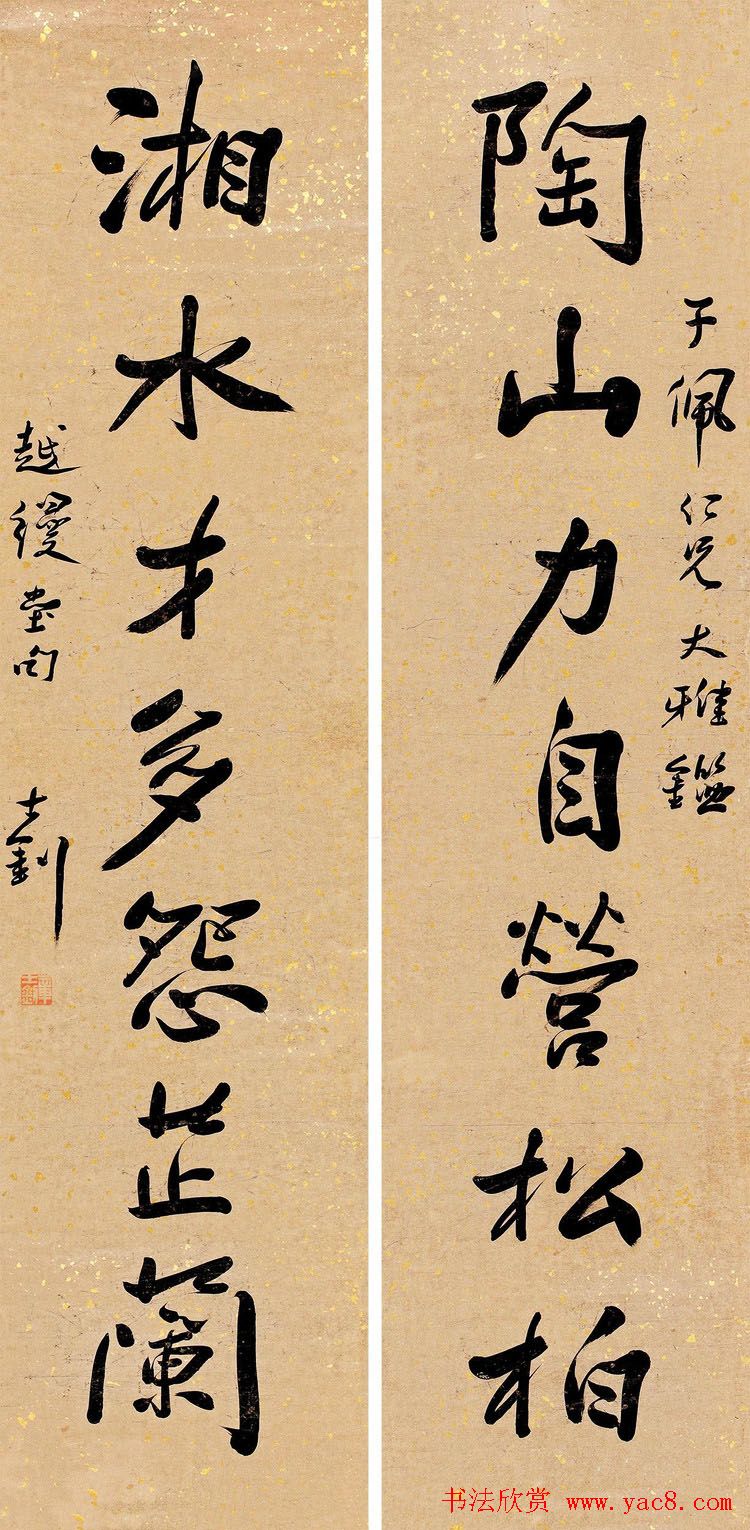 陶山力自營松柏
于佩仁兄大雅鑑
湘水才多怨芷蘭
越縵堂句 士釗
书法欣赏 www.yac8.com